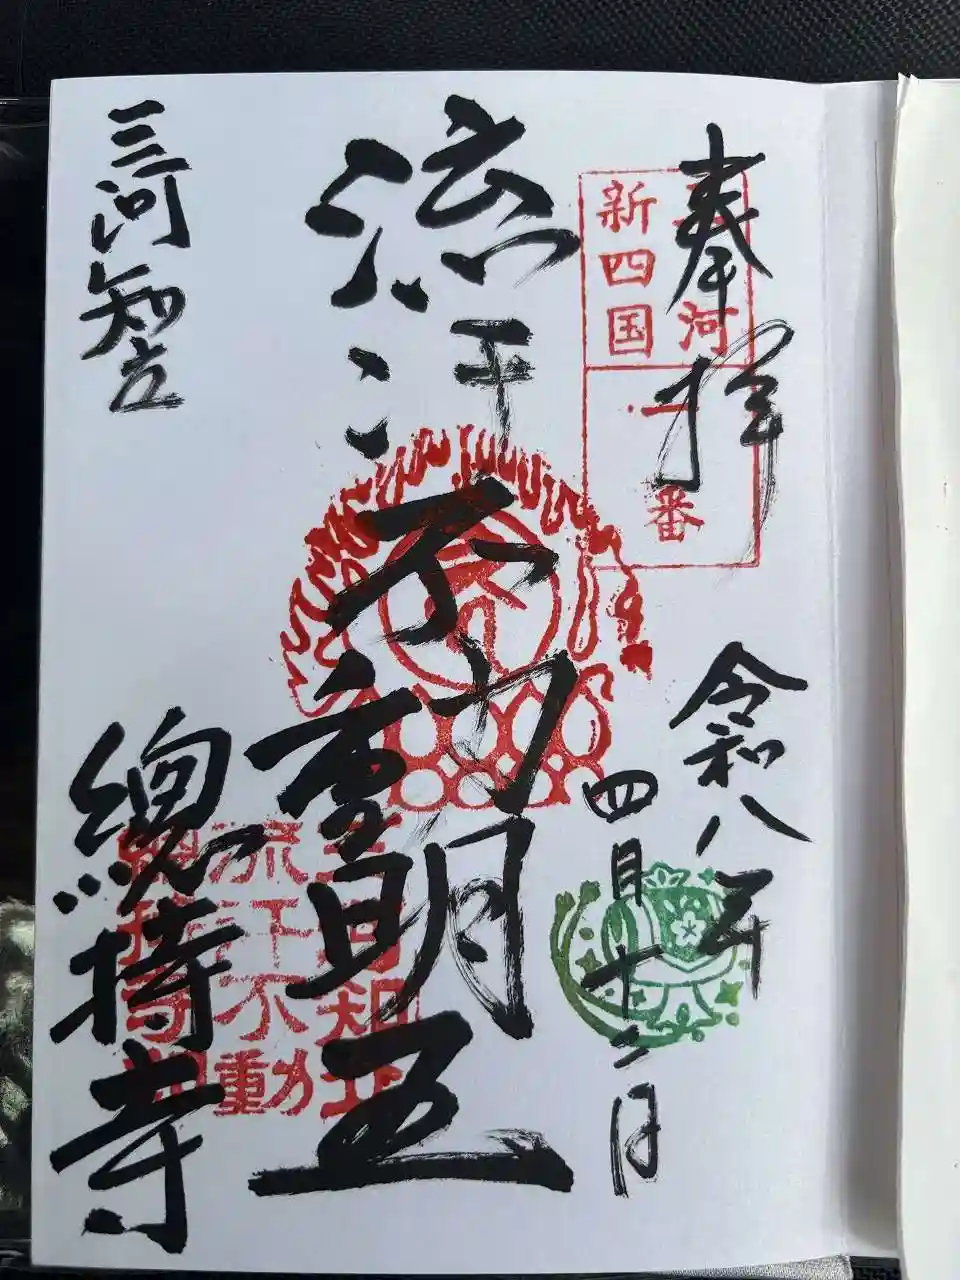 奉拝
三河
新四国
一番
令和八年
四月十二日
流汗不動明王
三河知立
流汗不動
總持寺印
三河知立
總持寺